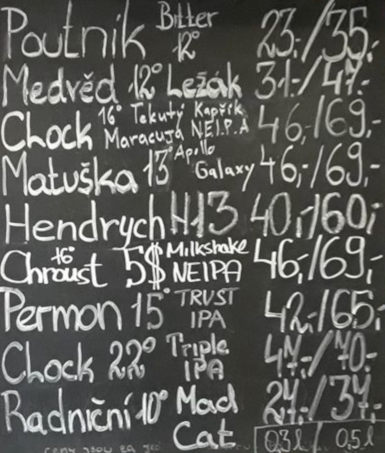 Poutník Bitter 12° 23,-/35,-
Medvěd 12° Ležák 31,-/47,-
Chock 16° Tekutý Kapřík Maracuja NEI.P.A 46,-/69,-
Matuška 13° Apollo Galaxy 46,-/69,-
Hendrych H13 40,-/60,-
Chroust 16° 5$ Milkshake NEIPA 46,-/69,-
Permon 15° TRUST IPA 42,-/65,-
Chock 22° Triple IPA 47,-/70,-
Radniční 10° Mad Cat 24,-/37,-
0,3l / 0,5l
ceny jsou za